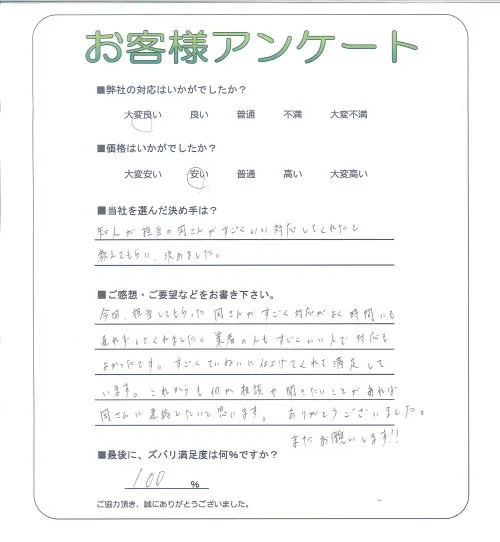 お客様アンケート
■弊社の対応はいかがでしたか？
大変良い 良い 普通 不満 大変不満
■価格はいかがでしたか？
大変安い 安い 普通 高い 大変高い
■当社を選んだ決め手は？
知人が担当の岡さんがすごくいい対応してくれたと
教えてもらい、決めました。
■ご感想・ご要望などをお書き下さい。
今回、担当してもらった岡さんがすごく対応がよく時間にも
遅れずしてくれました。業者の人もすごくいい人で対応も
よかったです。すごくていねいに仕上げてくれて満足して
います。これからも何か相談や聞きたいことがあれば
岡さんに連絡したいと思います。ありがとうございました。
またお願いします!!
■最後に、ズバリ満足度は何％ですか？
100 ％
ご協力頂き、誠にありがとうございました。